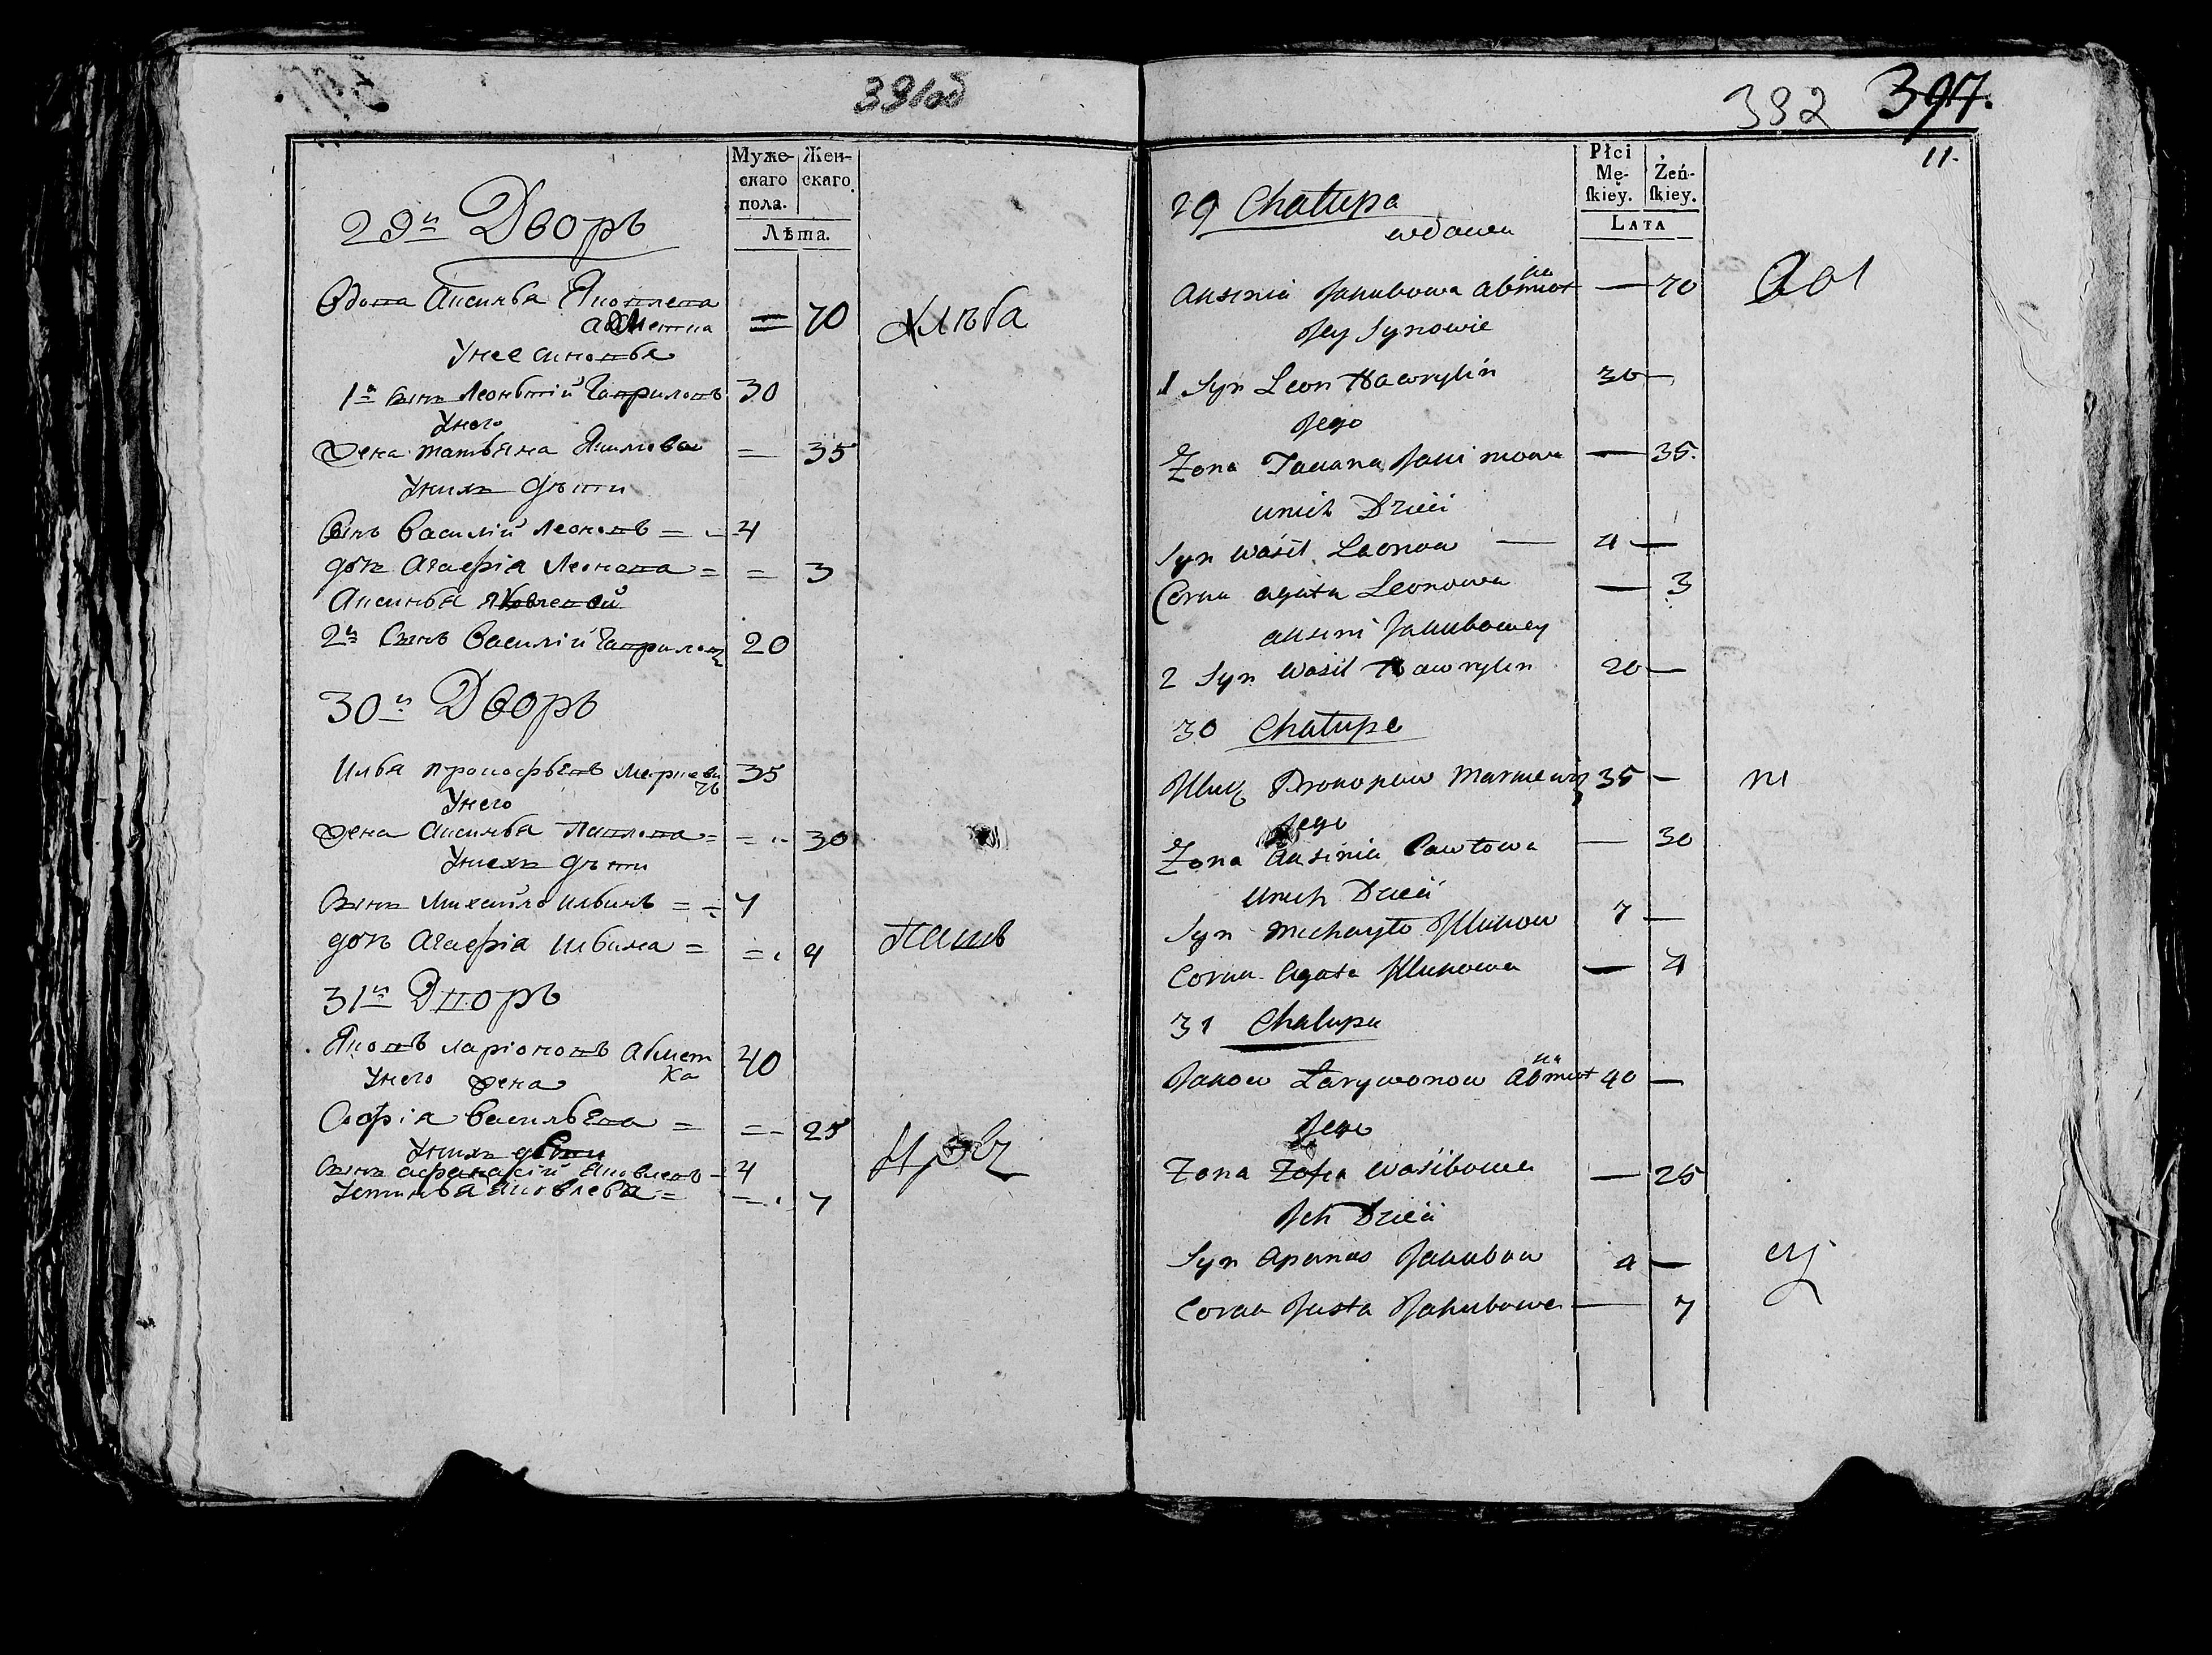 391об
Муже-
скаго
пола.
Жен-
скаго
Лѣта.
29й Дворъ
Вдова Аксинья Яковлева
Абметка = 70 Хлѣба
Унее синовья
1й Сынъ Леоньтій Гавриловъ 30
Унего
Жена Татьяна Якимова = 35
Унихъ дѣти
Сынъ Василій Леоновъ = 4
дочь Агафія Леонова = = 3
Аксиньѣ Яковлевой
2й Сынъ Василій Гавриловъ 20
30й Дворъ
Илья Прокофьевъ Маркеви 35
чь
Унего
Жена Аксинья Павлова = = 30
Унихъ дѣти
Сынъ Михайло Ильинъ = 7
дочь Агафія Ильина = = 4
31й Дворъ
Яковъ Ларіоновъ Абмет 40
Унего жена ка
Софія Васильева = = 25
Унихъ дѣти
Сынъ Афанасій Яковлевъ 4
Устинья Яковлева = = 7
392 397.
11.
Płci
Mę-
ſkiey.
Żeń-
ſkiey.
LATA
29 Chałupa
wdowa
ka
Aksinia Jakubowa Abmiot — 70
Jey Synowie
1 Syn Leon Hawrylin 30 —
Jego
Żona Taciana Jakimowa — 35.
unich Dzieci
Syn Wasil Leonow — 4 —
Corka Agata Leonowa — 3
Aksini Jakubowey
2 Syn Wasil Hawrylin 20 —
30 Chałupa
Illia Prokopow Markiewicz 35 —
Jego
Żona Aksinia Pawłowa — 30
unich Dzieci
Syn Michayło Illinow 7 —
Corka Agata Illinowa — 4
31 Chałupa
ka
Jakow Larywonow Abmiot 40 —
Jego
Żona Zofia Wasilowa — 25
Ich Dzieci
Syn Apanas Jakubow 4 —
Corka Justa Jakubowa — 7